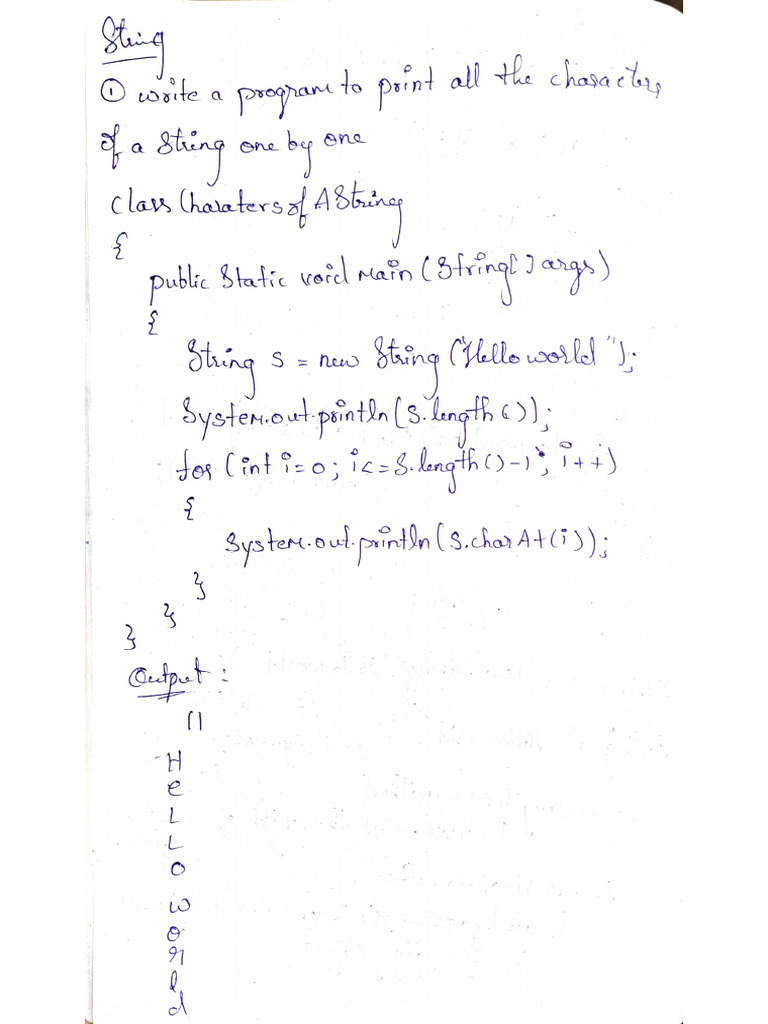 String
① write a program to print all the characters
of a String one by one
class CharatersofAString
{
public static void main (String[] args)
{
String s = new String ("Hello world");
System.out.println(s.length());
for (int i=0; i<=s.length()-1; i++)
{
System.out.println(s.charAt(i));
}
}
}
Output:
11
H
e
L
L
O
w
o
r
l
d